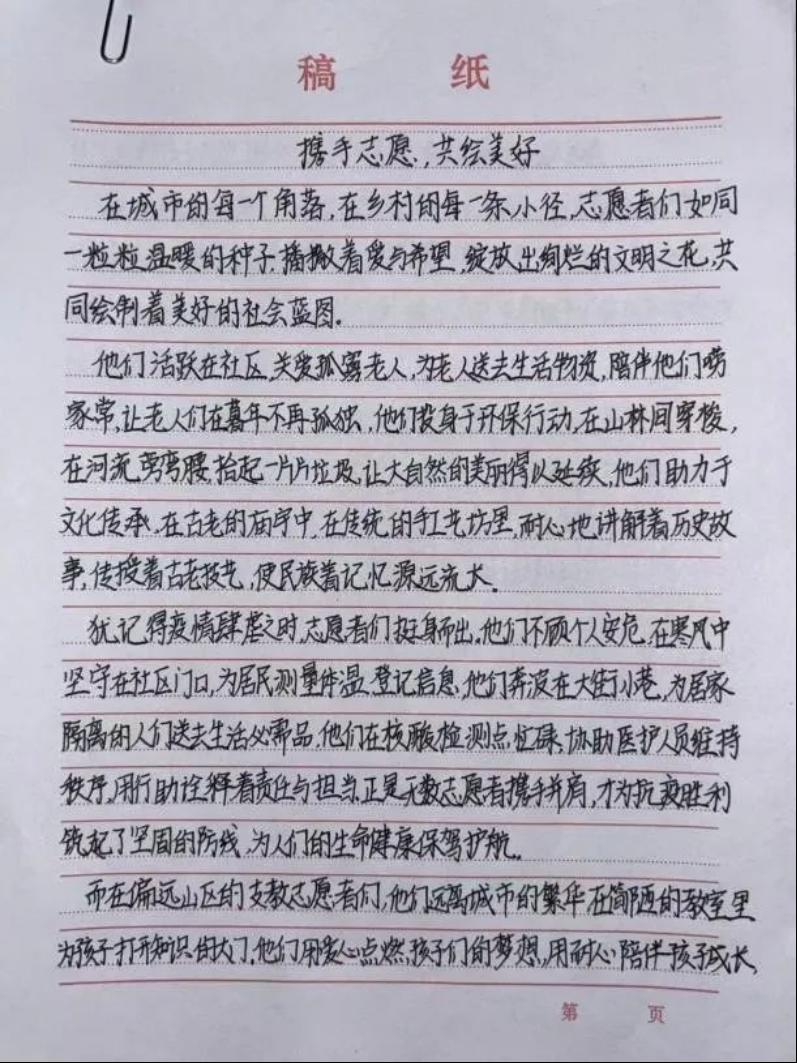 稿 纸
携手志愿,共绘美好
在城市的每一个角落,在乡村的每一条小径,志愿者们如同
一粒粒温暖的种子,播撒着爱与希望,绽放出绚烂的文明之花,共
同绘制着美好的社会蓝图.
他们活跃在社区,关爱孤寡老人,为老人送去生活物资,陪伴他们唠
家常,让老人们在暮年不再孤独,他们投身于环保行动,在山林间穿梭,
在河流旁弯腰,拾起一片片垃圾,让大自然的美丽得以延续,他们助力于
文化传承,在古老的庙宇中,在传统的手工艺坊里,耐心地讲解着历史故
事,传授着古老技艺,使民族着记忆源远流长.
犹记得疫情肆虐之时,志愿者们挺身而出,他们不顾个人安危,在寒风中
坚守在社区门口,为居民测量体温,登记信息,他们奔波在大街小巷,为居家
隔离的人们送去生活必需品,他们在核酸检测点忙碌,协助医护人员维持
秩序,用行助诠释着责任与担当,正是无数志愿者携手并肩,才为抗疫胜利
筑起了坚固的防线,为人们的生命健康保驾护航.
而在偏远山区的支教志愿者们,他们远离城市的繁华在简陋的教室里
为孩子打开知识的大门,他们用爱心点燃,孩子们的梦想,用耐心陪伴孩子成长,
第 页